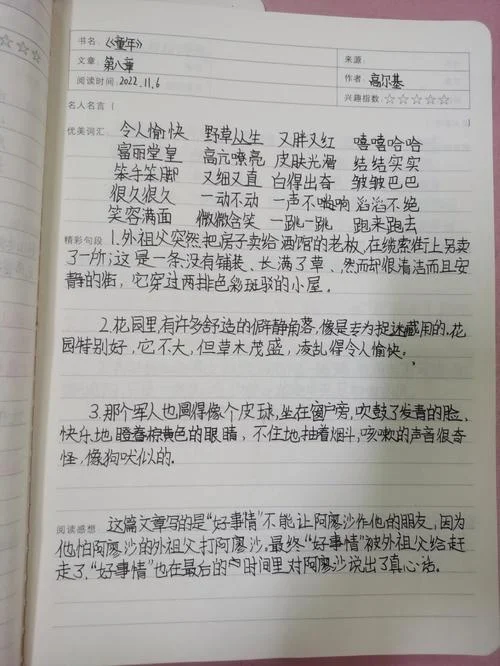 书名：《童年》
文章：第八章
来源：
阅读时间：2022.11.6
作者：高尔基
兴趣指数：☆☆☆☆☆
名人名言
优美词汇 令人愉快 野草丛生 又胖又红 嘻嘻哈哈
富丽堂皇 高亢嘹亮 皮肤光滑 结结实实
笨手笨脚 又细又直 白得出奇 皱皱巴巴
很久很久 一动不动 一声不啪响 滔滔不绝
笑容满面 微微含笑 一跳一跳 跑来跑去
精彩句段 1.外祖父突然把房子卖给酒馆的老板,在缆索街上另卖
了一所;这是一条没有铺装、长满了草、然而却很清洁而且安
静的街，它穿过两排色彩斑驳的小屋。
2.花园里有许多舒适的僻静角落,像是专为捉迷藏用的.花
园特别好，它不大，但草木茂盛，凌乱得令人愉快。
3.那个军人也圆得像个皮球,坐在窗户旁,吹鼓了发青的脸,
快乐地瞪着棕黄色的眼睛，不住地抽着烟斗,咳嗽的声音很奇
怪,像狗吠似的.
阅读感想 这篇文章写的是“好事情”不能让阿廖沙作他的朋友,因为
他怕阿廖沙的外祖父打阿廖沙.最终“好事情”被外祖父给赶
走了.“好事情”也在最后的时间里对阿廖沙说出了真心话.